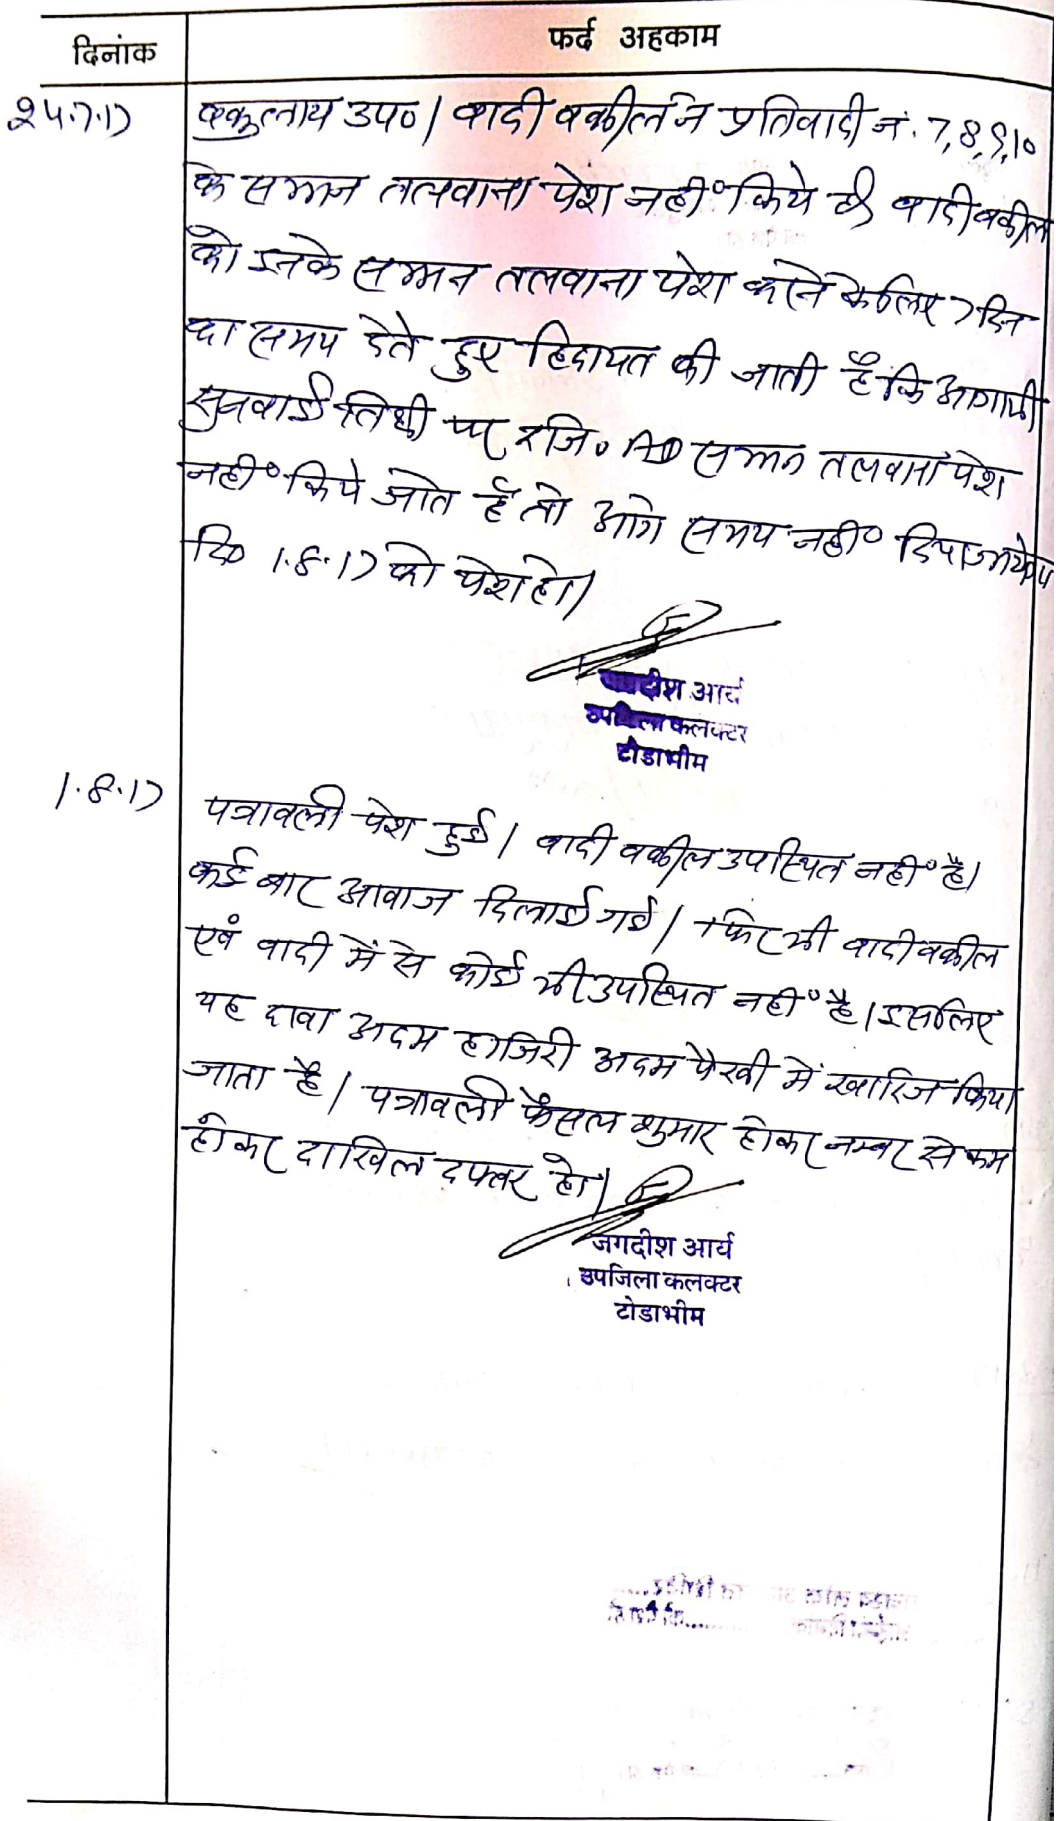 दिनांक
फर्द अहकाम
24.7.17
वकुलाय उप०। वादी वकील ने प्रतिवादी नं. 7,8,9,10
के सम्मन तलवाना पेश नहीं किये है। वादी वकील
को इनके सम्मन तलवाना पेश करने के लिए 7 दिन
का समय देते हुए हिदायत की जाती है कि आगामी
सुनवाई तिथी पर रजि० AD सम्मन तलवाना पेश
नहीं किये जाते है तो आगे समय नहीं दिया जायेगा
दि० 1.8.17 को पेश हो।
जगदीश आर्य
उपजिला कलक्टर
टोडाभीम
1.8.17
पत्रावली पेश हुई। वादी वकील उपस्थित नहीं है।
कई बार आवाज दिलाई गई। फिर भी वादी वकील
एवं वादी में से कोई भी उपस्थित नहीं है। इसलिए
यह दावा अदम हाजिरी अदम पैरवी में खारिज किया
जाता है। पत्रावली फैसल शुमार होकर नम्बर से कम
होकर दाखिल दफ्तर हो।
जगदीश आर्य
उपजिला कलक्टर
टोडाभीम